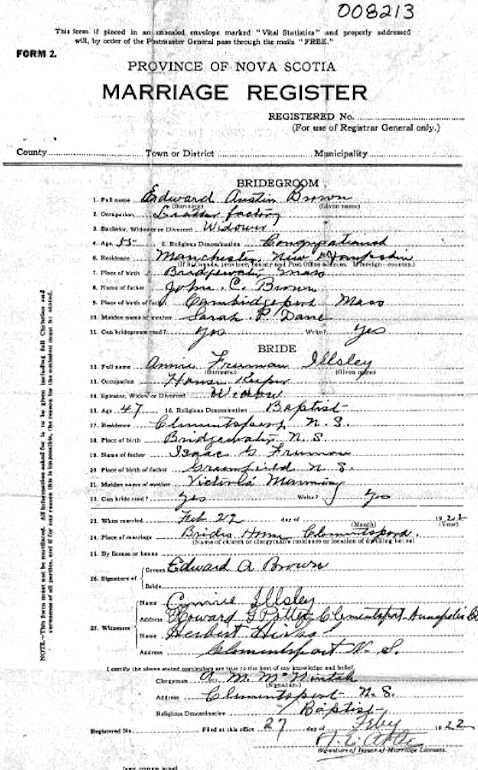 008213
This form if placed in an unsealed envelope marked "Vital Statistics" and properly addressed
will, by order of the Postmaster General pass through the mails "FREE."
FORM 2.
PROVINCE OF NOVA SCOTIA
MARRIAGE REGISTER
REGISTERED No.
(For use of Registrar General only.)
County Town or District Municipality
BRIDEGROOM
1. Full name Edward Austin Brown
(Surname) (Given name)
2. Occupation factory
3. Bachelor, Widower or Divorced Widower
4. Age 55 5. Religious Denomination Congregational
6. Residence Manchester, New Hampshire
7. Place of birth Bridgewater Mass
8. Name of father John C. Brown
9. Place of birth of father Cambridgeport Mass
10. Maiden name of mother Sarah P. Dane
11. Can bridegroom read? Yes Write? Yes
BRIDE
12. Full name Annie Freeman Illsley
(Surname) (Given name)
13. Occupation House Keeper
14. Spinster, Widow or Divorced Widow
15. Age 47 16. Religious Denomination Baptist
17. Residence Clementsport, N.S.
18. Place of birth Bridgewater, N.S.
19. Name of father Isaac G. Freeman
20. Place of birth of father Greenfield N.S.
21. Maiden name of mother Victoria Manning
22. Can bride read? Yes Write? Yes
23. When married Feb 27 day of 1922
(Month) (Year)
24. Place of marriage Brides Home Clementsport
25. By license or banns
26. Signature of Groom Edward A Brown
Bride
27. Witnesses Name Illsley
Address Howard G Clementsport Annapolis
Name Herbert Hicks
Address Clementsport N.S.
I certify the above stated particulars are true to the best of my knowledge and belief.
Clergyman A. M. McNintch
(Signature)
Address Clementsport N.S.
Religious Denomination Baptist
Registered No. Filed at this office 27 day of Feby 1922
Signature of Issuer of Marriage Licenses.
NOTE.—This form must not be mutilated. All information asked for is to be given including full Christian and
surnames of all parties, and if for any reason this is impossible, the reason for the omission must be stated.